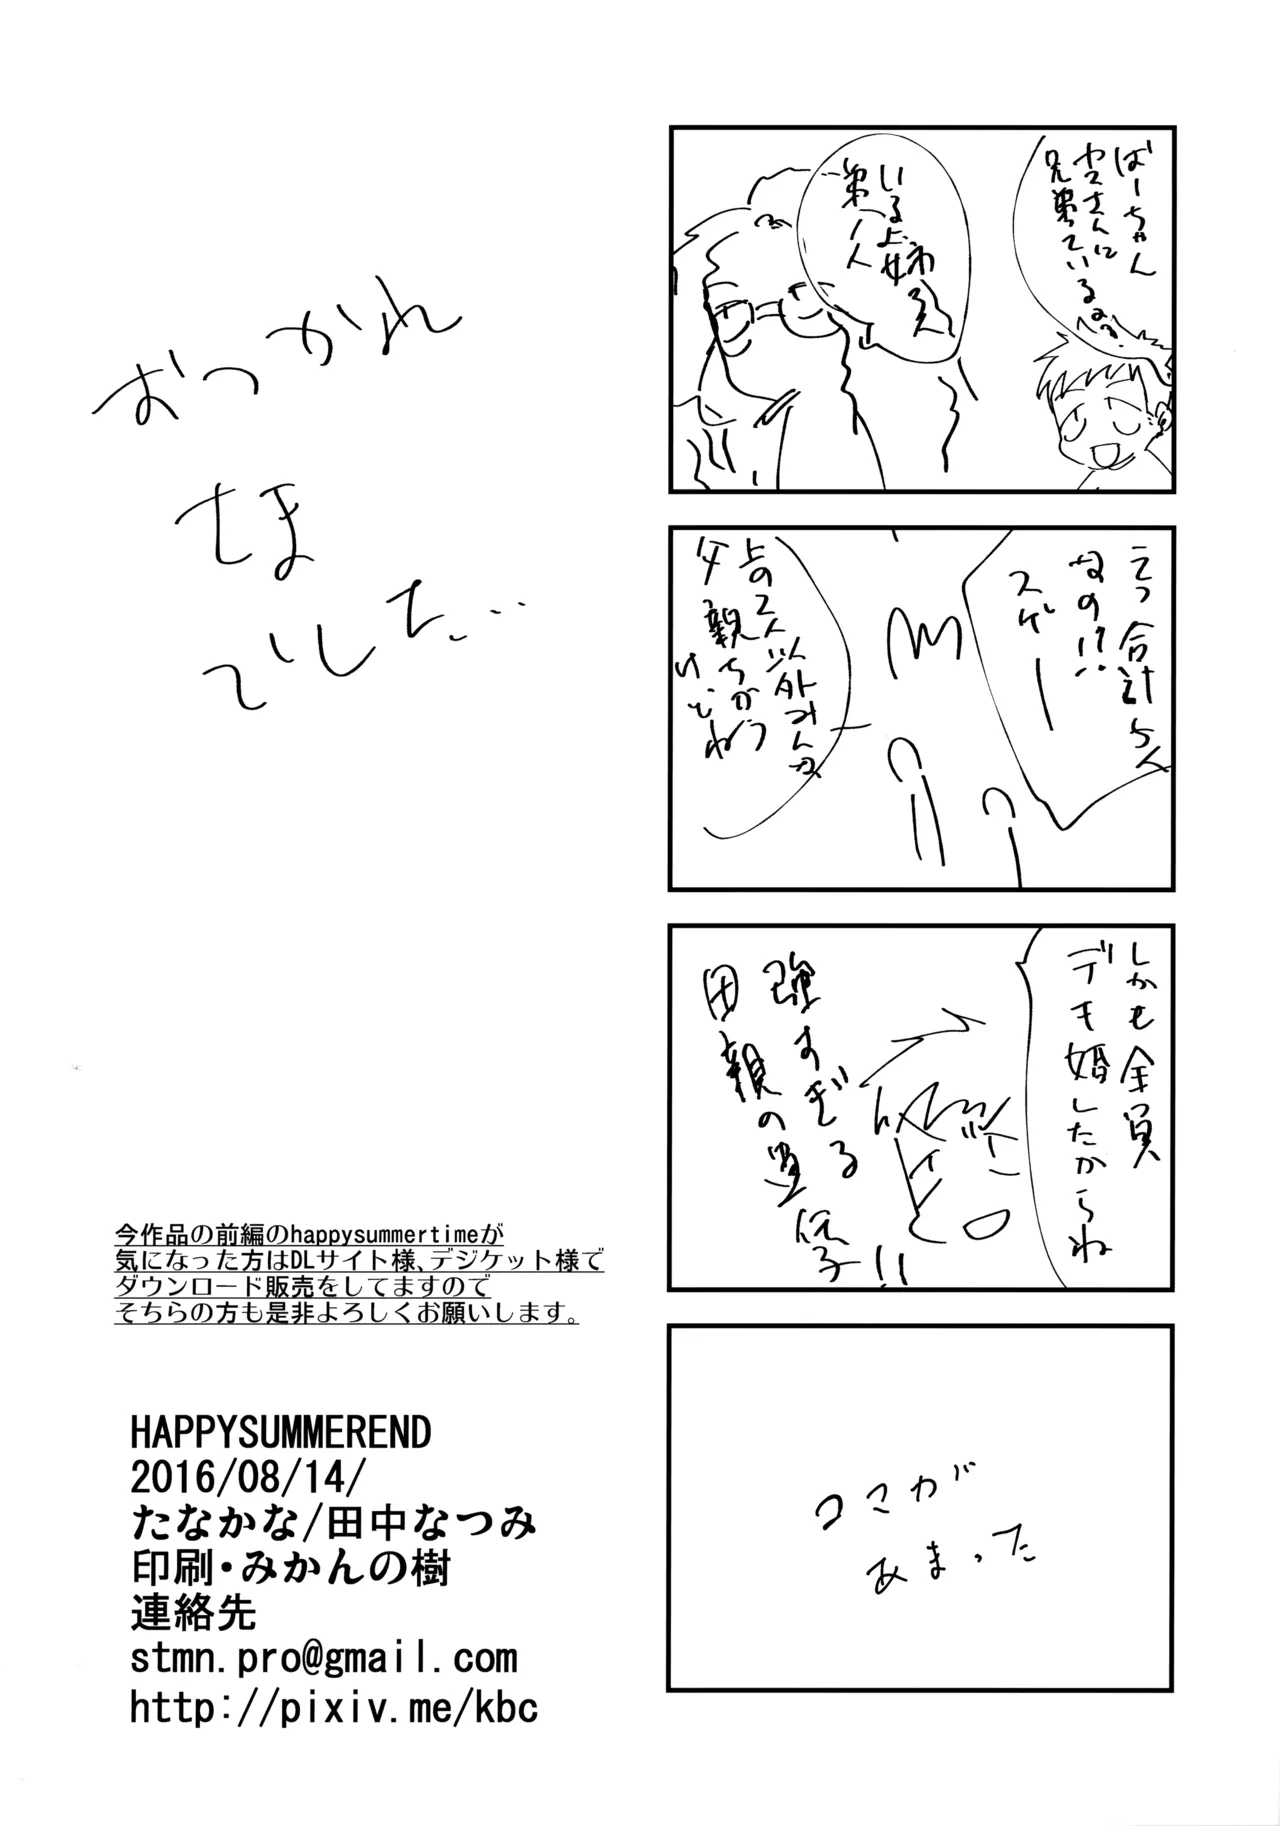 ばーちゃん
ヤスさんに
兄弟っているの?
いる上姉
弟一人
えっ合計5人
なの!?
スゲー
上の2人以外みんな
父親ちがう
けどね
しかも全員
デキ婚したからね
強すぎる
母親の遺伝子!!
コマが
あまった
おつかれ
さま
でした…
今作品の前編のhappysummertimeが
気になった方はDLサイト様、デジケット様で
ダウンロード販売をしてますので
そちらの方も是非よろしくお願いします。
HAPPYSUMMEREND
2016/08/14/
たなかな/田中なつみ
印刷・みかんの樹
連絡先
stmn.pro@gmail.com
http://pixiv.me/kbc